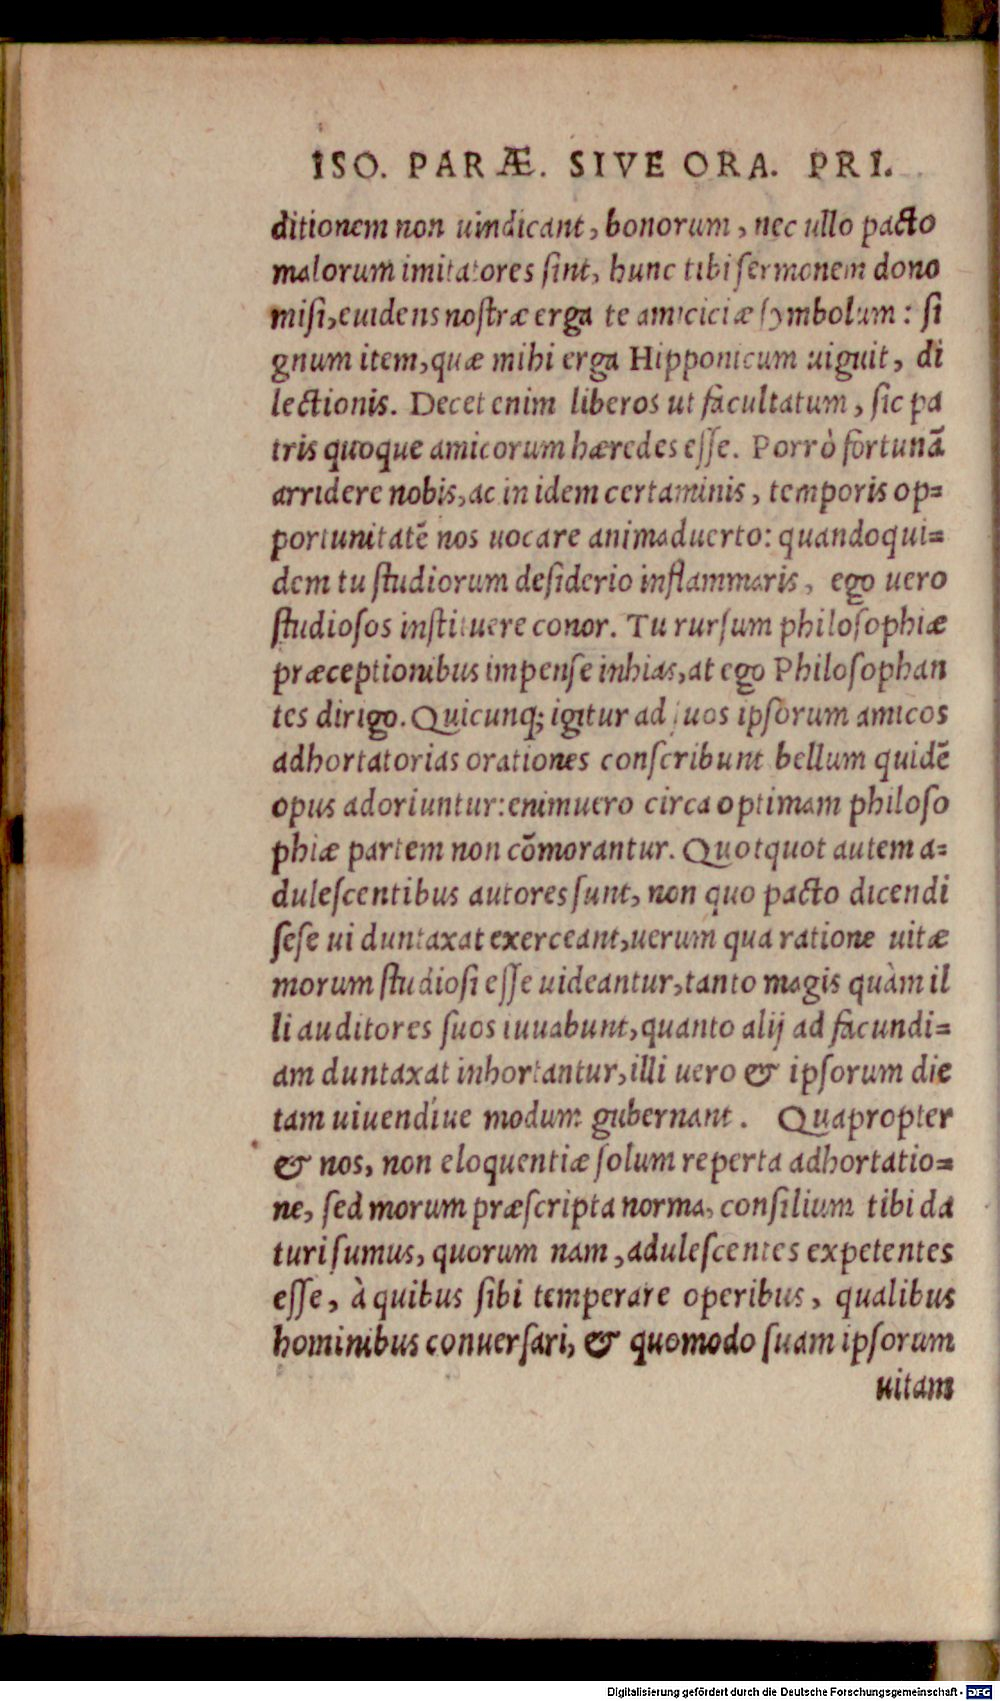 ISO. PARÆ. SIVE ORA. PRI.
ditionem non uindicant, bonorum, nec ullo pacto
malorum imitatores ſint, hunc tibi ſermonem dono
miſi, euidens noſtræ erga te amiciciæ ſymbolum: ſi
gnum item, quæ mihi erga Hipponicum uiguit, di
lectionis. Decet enim liberos ut facultatum, ſic pa
tris quoque amicorum hæredes eſſe. Porrò fortunã
arridere nobis, ac in idem certaminis, temporis op=
portunitatẽ nos uocare animaduerto: quandoqui=
dem tu ſtudiorum deſiderio inflammaris, ego uero
ſtudioſos inſtituere conor. Tu rurſum philoſophiæ
præceptionibus impenſe inhias, at ego Philoſophan
tes dirigo. Quicunq; igitur ad ſuos ipſorum amicos
adhortatorias orationes conſcribunt bellum quidẽ
opus adoriuntur: enimuero circa optimam philoſo
phiæ partem non cõmorantur. Quotquot autem a=
duleſcentibus autores ſunt, non quo pacto dicendi
ſeſe ui duntaxat exerceant, uerum qua ratione uitæ
morum ſtudioſi eſſe uideantur, tanto magis quàm il
li auditores ſuos iuuabunt, quanto alij ad facundi=
am duntaxat inhortantur, illi uero & ipſorum die
tam uiuendíue modum gubernant. Quapropter
& nos, non eloquentiæ ſolum reperta adhortatio=
ne, ſed morum præſcripta norma, conſilium tibi da
turi ſumus, quorum nam, aduleſcentes expetentes
eſſe, à quibus ſibi temperare operibus, qualibus
hominibus conuerſari, & quomodo ſuam ipſorum
uitam
Digitalisierung gefördert durch die Deutsche Forschungsgemeinschaft - DFG